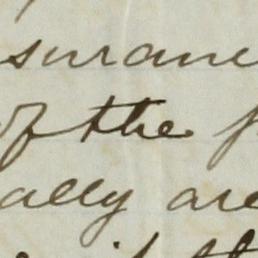 surance
of the
ally are